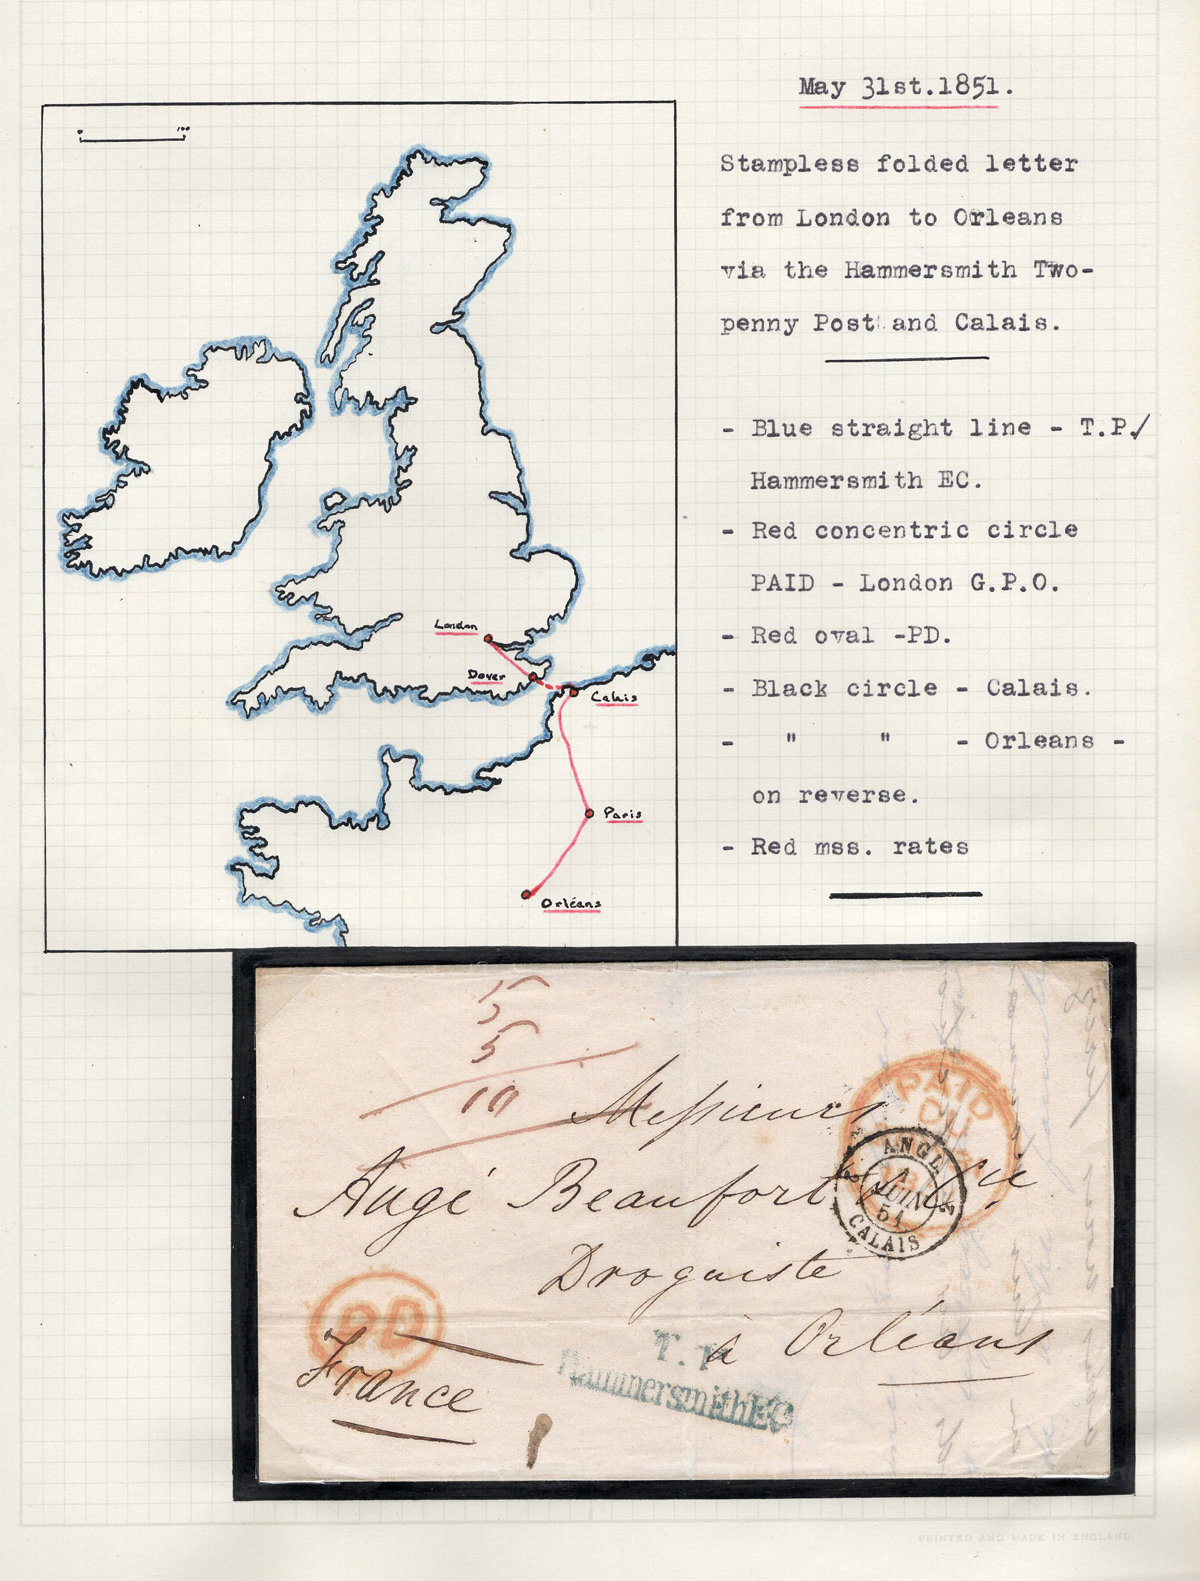 May 31st.1851.
Stampless folded letter
from London to Orleans
via the Hammersmith Two-
penny Post and Calais.
- Blue straight line - T.P./
Hammersmith EC.
- Red concentric circle
PAID - London G.P.O.
- Red oval -PD.
- Black circle - Calais.
- " " - Orleans -
on reverse.
- Red mss. rates
0 100
London
Dover
Calais
Paris
Orléans
5
5
10
Messieurs
Augé Beaufort & Cie
Droguiste
à Orléans
France
PAID
ANGL.
1
JUIN
51
CALAIS
PD
T.P
Hammersmith EC
PRINTED AND MADE IN ENGLAND.